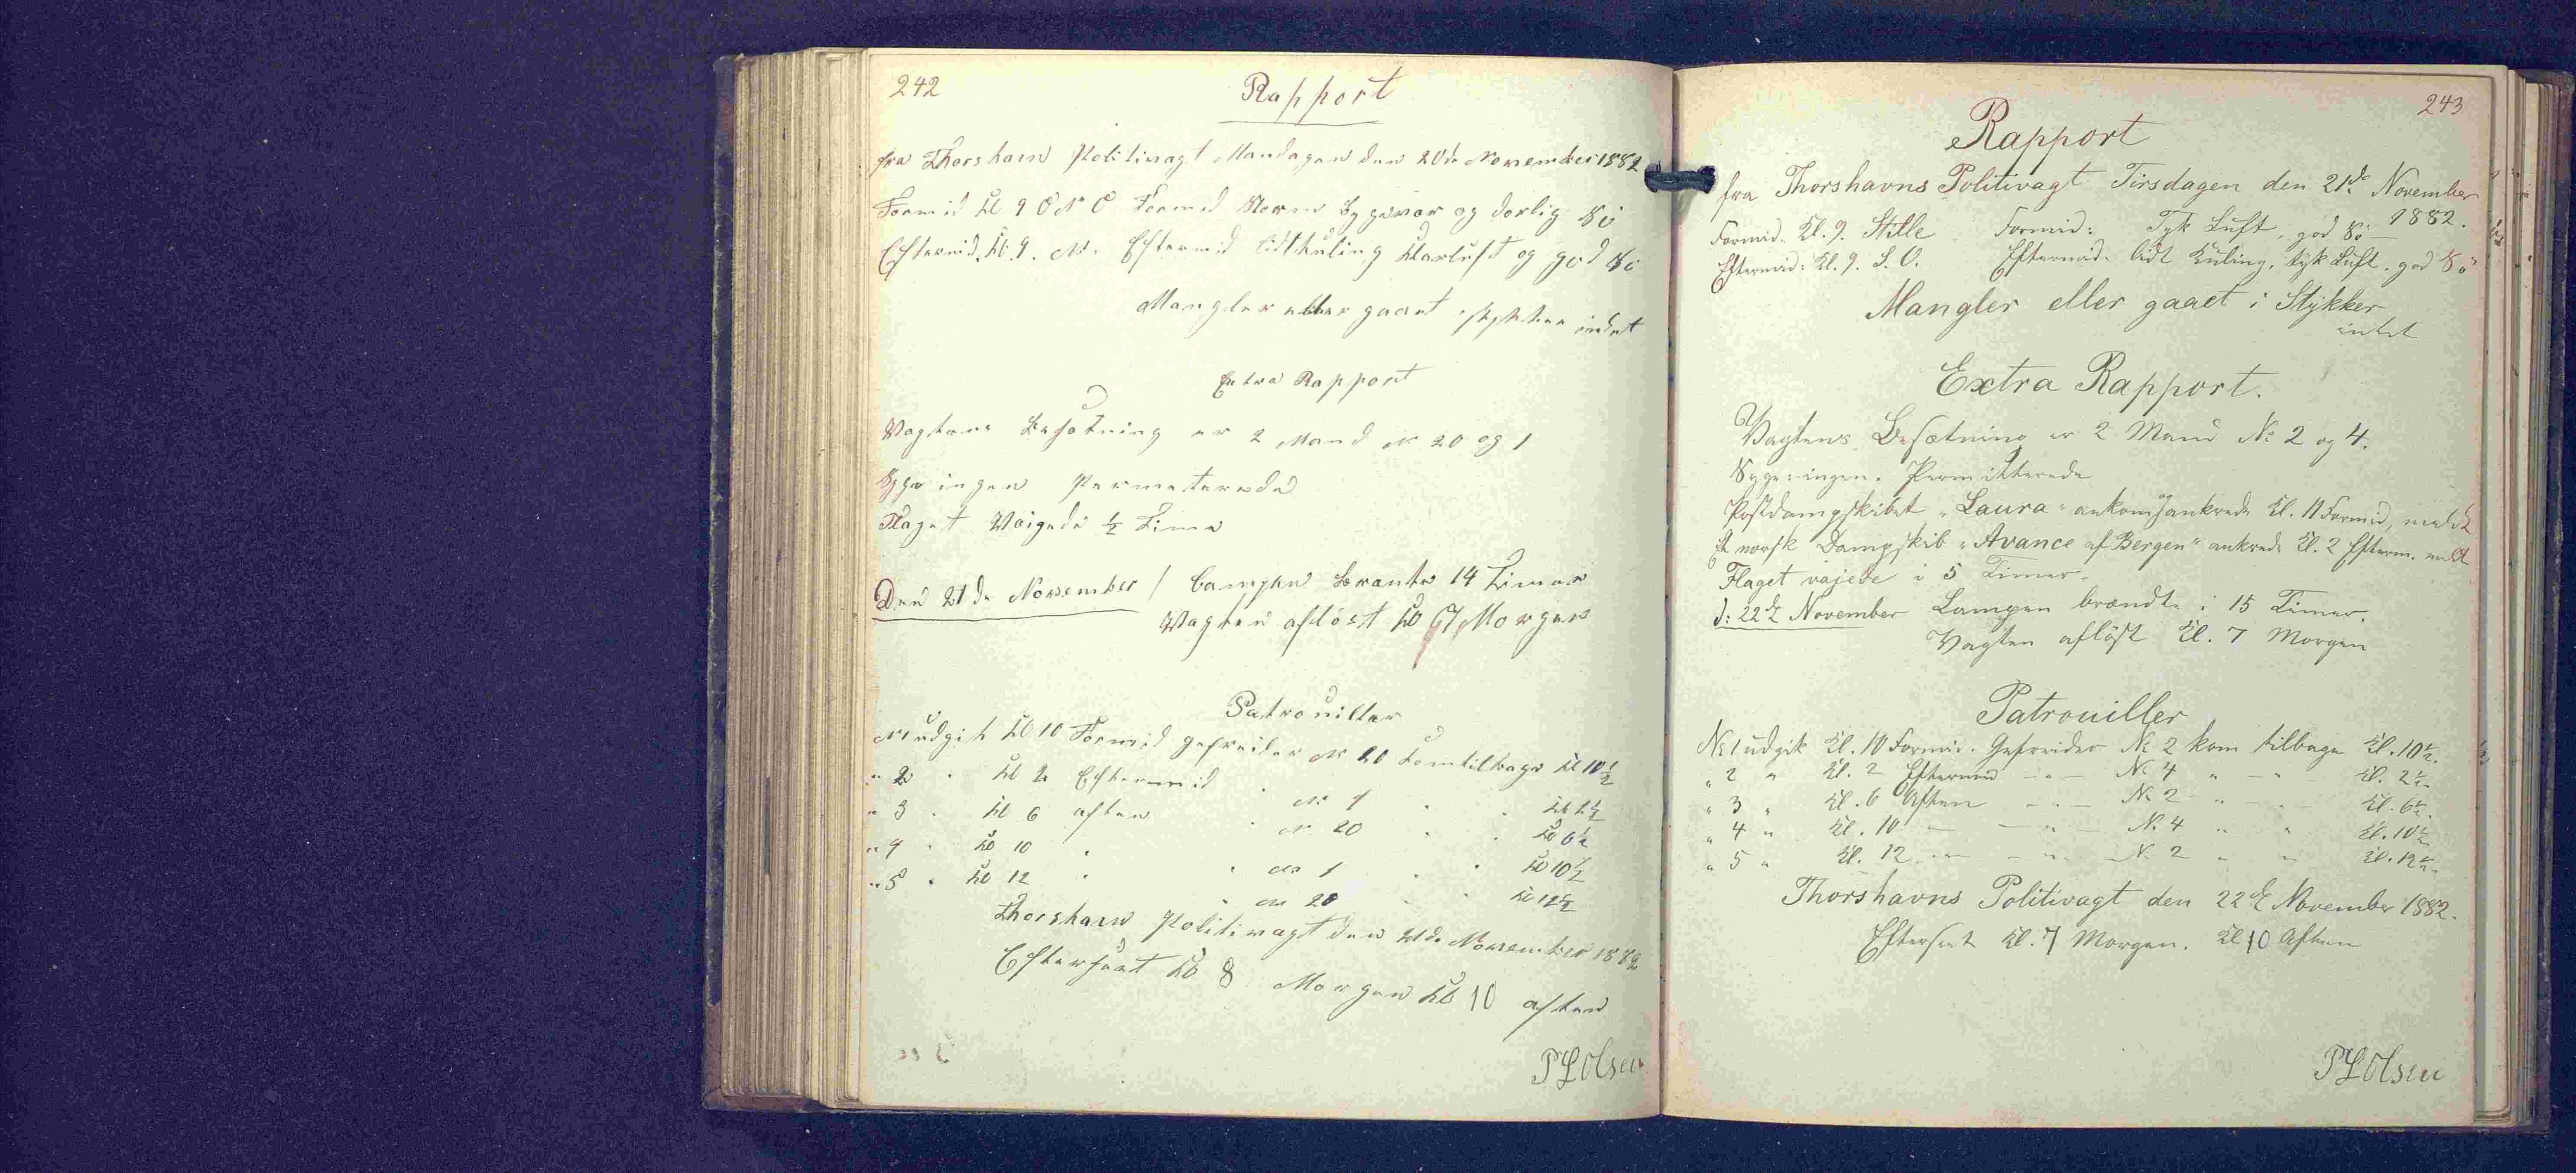 242
Rapport
fra Thorshavn Politivagt Mandagen den 20de November 1882
Formid Kl 9 O N O Formid Storm bygevær og dorlig Sö
Eftermid. Kl. 9. N. Eftermid lidt kuling klarluft og god Sö
Mangler eller gaaet i stykker indet
Extra Rapport
Vagtens Besætning er 2 Mand N 20 og 1
Syge ingen Permeterede
Flaget Vaigede ½ Time
Den 21de November / Lampen brænte 14 Timer
Vagten aflöst Kl 7 Morgen
Patrouiller
N 1 udgik Kl 10 Formid gefreider N 20 kom tilbage Kl 10½
" 2 " Kl 2 Eftermid " N 1 " " Kl 2½
" 3 " Kl 6 aften " N 20 " " Kl 6½
" 4 " Kl 10 " " N 1 " " Kl 10½
" 5 " Kl 12 " " N 20 " " Kl 12½
Thorshavn Politivagt den 21de November 1882
Efterseet Kl 8 Morgen Kl 10 aften
P L Olsen
243
Rapport
fra Thorshavns Politivagt Tirsdagen den 21de November
1882.
Formid. Kl. 9. Stille Formid: Tyk Luft, god Sö
Eftermid: Kl. 9. S. O. Eftermid. lidt Kuling, tyk Luft. god Sö
Mangler eller gaaet i Stykker
intet
Extra Rapport.
Vagtens Besætning er 2 Mand No 2 og 4.
Syge: ingen. Permitterede
Postdampskibet "Laura" ankom og ankrede Kl. 11 Formid,
Et norsk Dampskib "Avance af Bergen" ankrede Kl. 2 Efterm.
Flaget vajede i 5 Timer.
d: 22de November Lampen brændte i 15 Timer.
Vagten aflöst Kl. 7 Morgen
Patrouiller
No 1 udgik Kl. 10 Formid. Gefreider No 2 kom tilbage Kl. 10½.
" 2 " Kl. 2 Eftermid - " - No 4 " - " - Kl. 2½.
" 3 " Kl. 6 Aften - " - No 2 " - " - Kl. 6½.
" 4 " Kl. 10 - - " - No 4 " " Kl. 10½
" 5 " Kl. 12 - - " - No 2 " " Kl. 12½.
Thorshavns Politivagt den 22de November 1882.
Efterset Kl. 7 Morgen. Kl 10 Aften
P L Olsen